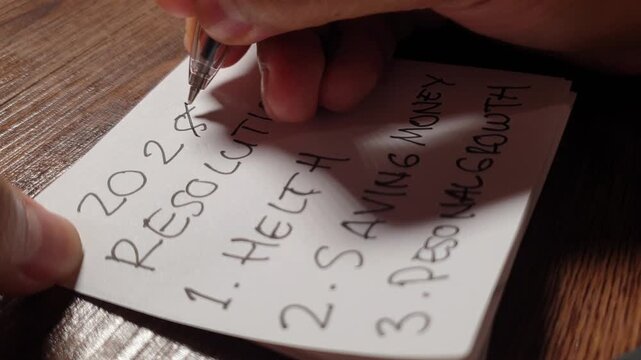 202
RESOLUTI
1. HELTH
2. SAVING MONEY
3. PESONAL GROWTH